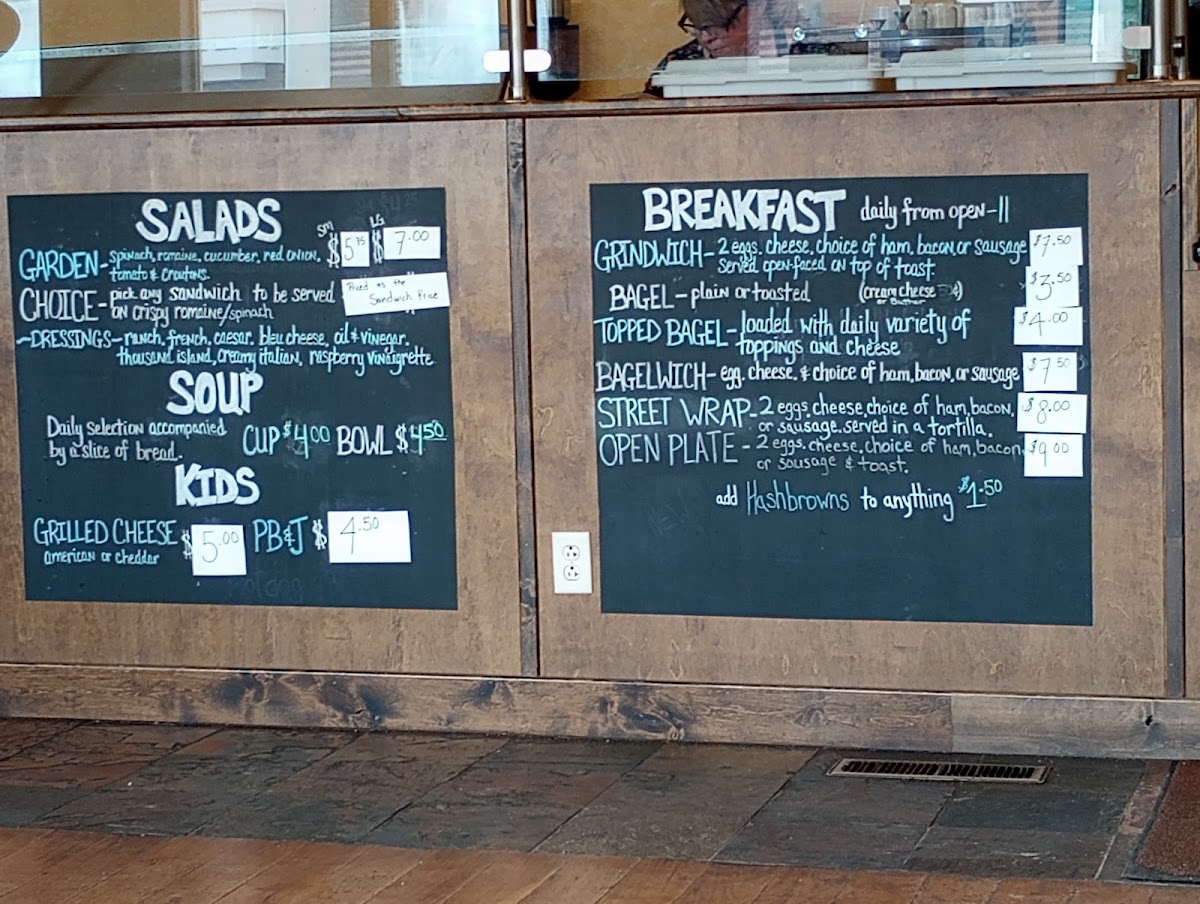 SALADS
SM LG
GARDEN - spinach, romaine, cucumber, red onion, $5.75 $7.00
tomato & croutons.
CHOICE - pick any SANDWICH to be served Priced as the
on crispy romaine/spinach Sandwich Price
~DRESSINGS - ranch, french, caesar, bleu cheese, oil & vinegar.
thousand island, creamy italian, raspberry vinaigrette
SOUP
Daily selection accompanied
by a slice of bread. CUP $4.00 BOWL $4.50
KIDS
GRILLED CHEESE $5.00 PB&J $4.50
american or cheddar
BREAKFAST daily from open - 11
GRINDWICH - 2 eggs, cheese, choice of ham, bacon, or sausage $7.50
served open-faced on top of toast.
BAGEL - plain or toasted (cream cheese ¢) $3.50
or Butter
TOPPED BAGEL - loaded with daily variety of $4.00
toppings and cheese
BAGELWICH - egg, cheese, & choice of ham, bacon, or sausage $7.50
STREET WRAP - 2 eggs, cheese, choice of ham, bacon, $8.00
or sausage, served in a tortilla.
OPEN PLATE - 2 eggs, cheese, choice of ham, bacon, $9.00
or sausage & toast.
add Hashbrowns to anything $1.50